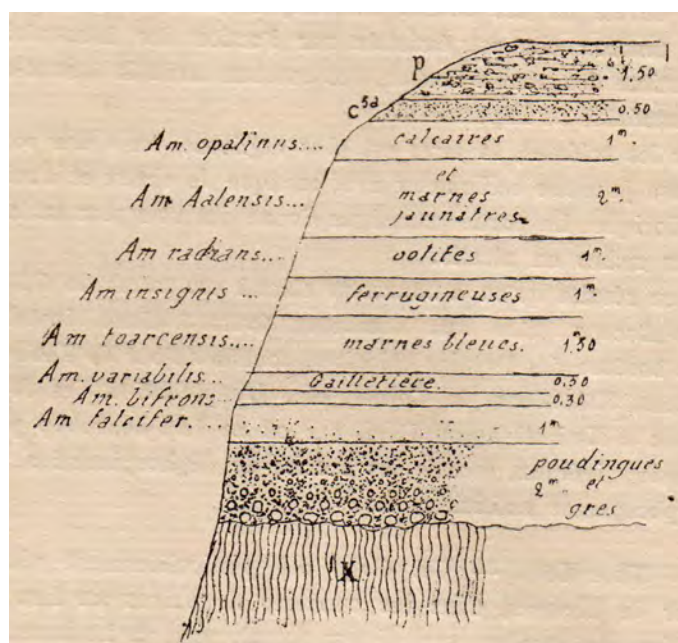 P 1,50
c5a 0,50
Am. opalinus.... calcaires 1m.
et
Am Aalensis... marnes 2m.
jaunâtres.
Am radians... oolites 1m.
Am insignis ... ferrugineuses 1m.
Am toarcensis.... marnes bleues. 1m50
Am. variabilis... Gailletière. 0,50
Am. bifrons... 0,30
Am falcifer. ... 1m
poudingues
2m. et
gres
X